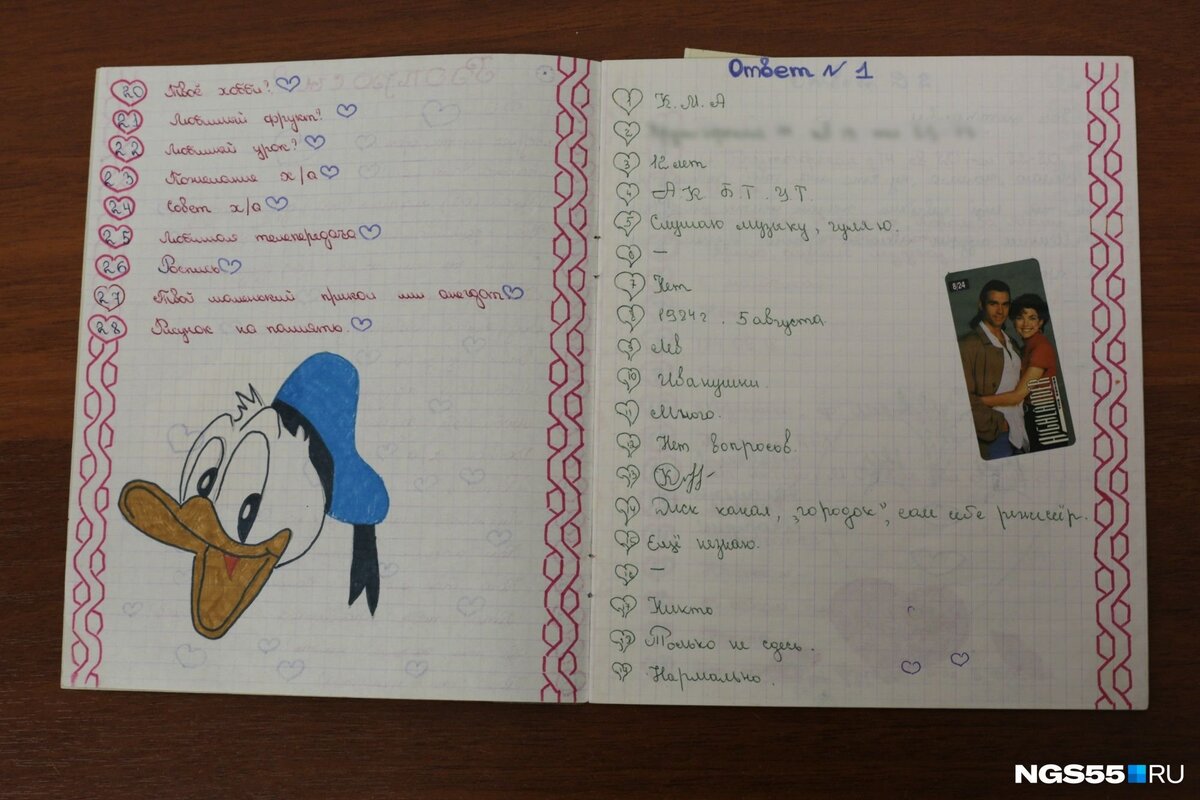 20 Твоё хобби?
21 Любимый фрукт?
22 Любимый урок?
23 Пожелания х/а
24 Совет х/а
25 Любимая телепередача
26 Роспись
27 Твой маленький прикол или анегдот
28 Рисунок на память.
Ответ N 1
1 К.М.А
2
3 12 лет
4 А К Б.Т. У.Т.
5 Слушаю музыку, гуляю.
6 —
7 Нет
8 5 августа.
9 Лев
10 Иванушки.
11 Много.
12 Нет вопросов.
13
14 Диск канал, „городок", сам себе режисёр.
15 Ещё незнаю.
16 —
17 Никто
18 Только не здесь.
19 Нармально.
8/24
HIGHLANDER
NGS55.RU